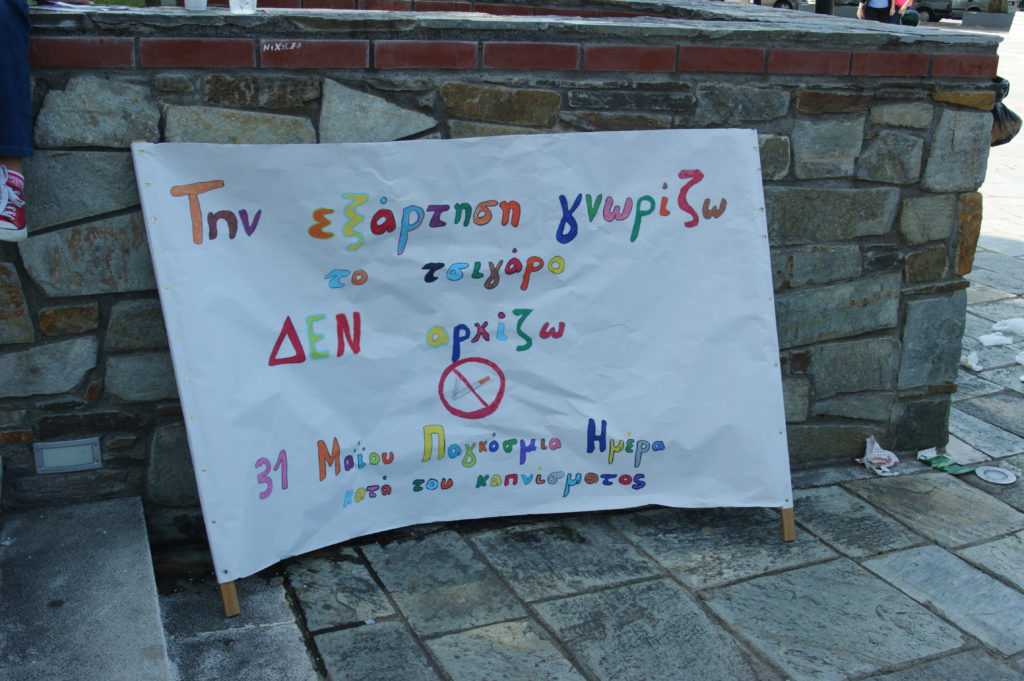 Την εξάρτηση γνωρίζω
το τσιγάρο
ΔΕΝ αρχίζω
31 Μαΐου Παγκόσμια Ημέρα
κατά του καπνίσματος